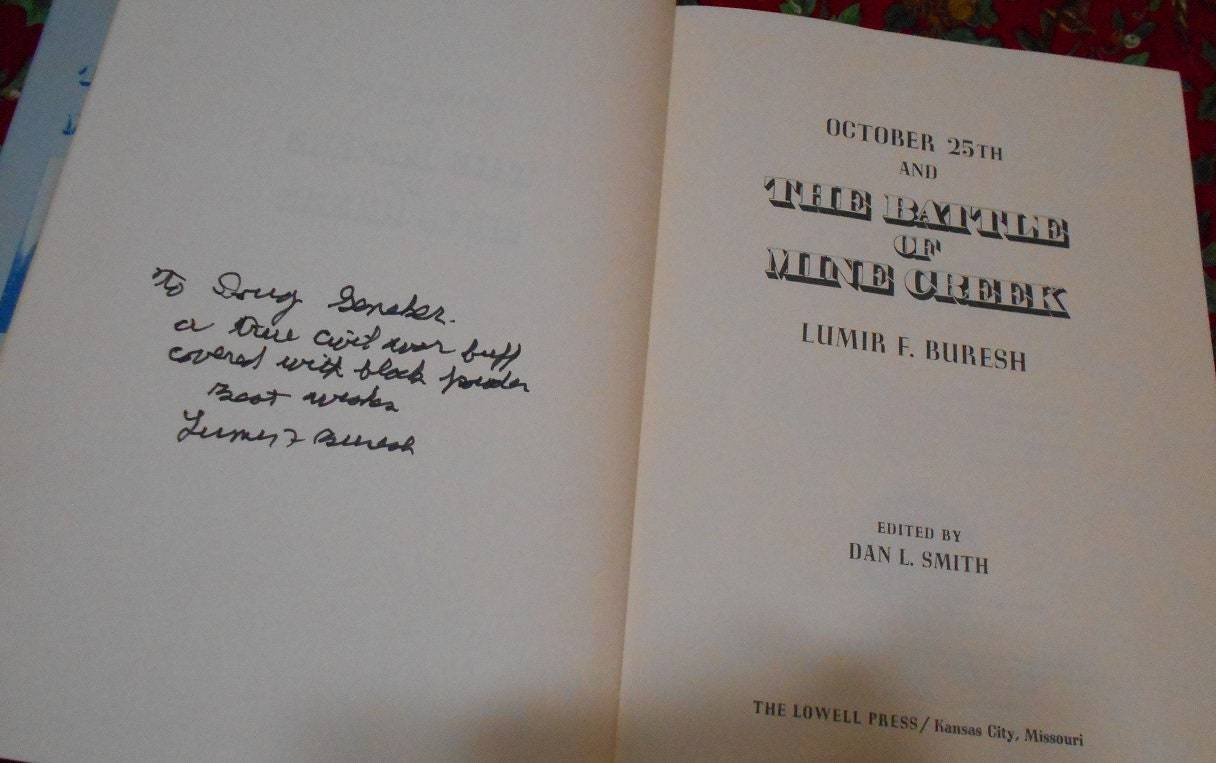 To Doug
a true civil war buff
covered with black powder
Best wishes
Lumir F Buresh
OCTOBER 25TH
AND
THE BATTLE
OF
MINE CREEK
LUMIR F. BURESH
EDITED BY
DAN L. SMITH
THE LOWELL PRESS/Kansas City, Missouri